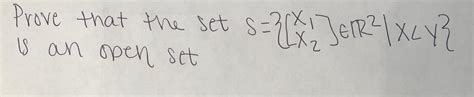 Prove that the set S={[X₁ X₂]∈ℝ²|X<Y}
is an open set